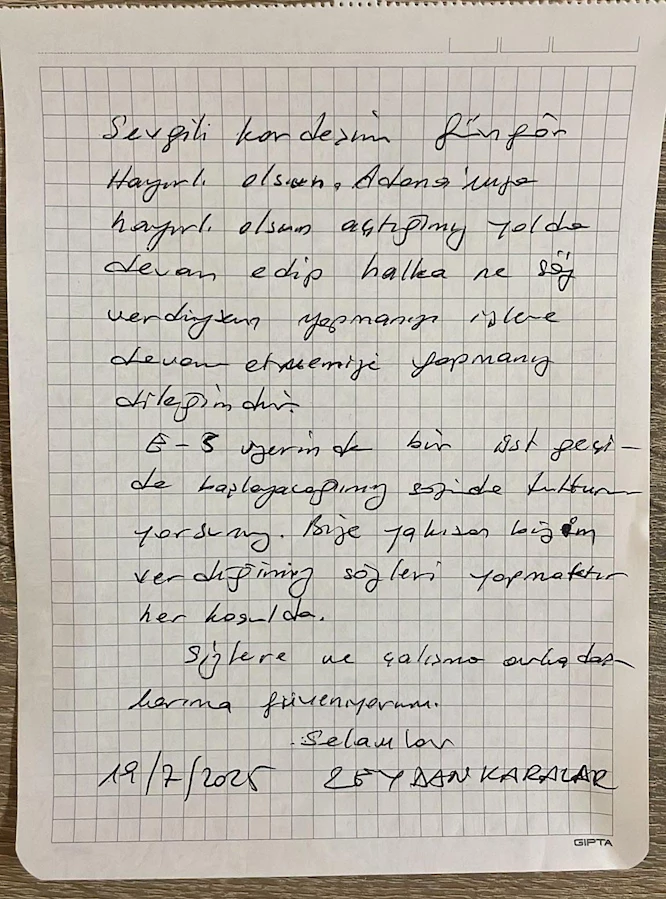 Sevgili kardeşim Güngör
Hayırlı olsun. Adana'mıza
hayırlı olsun açtığımız yolda
devam edip halka ne söz
verdiysem yapmanızı işlere
devam etmemizi yapmanız
dileğimdir.
E-5 üzerinde bir üst geçi-
de başlayacağımız sözü de tutturu
yorsunuz. Bize yakışan bizim
verdiğimiz sözleri yapmaktır
her koşulda.
Sizlere ve çalışma arkadaş-
larıma güveniyorum.
Selamlar
19/7/2025 ZEYDAN KARALAR
GIPTA